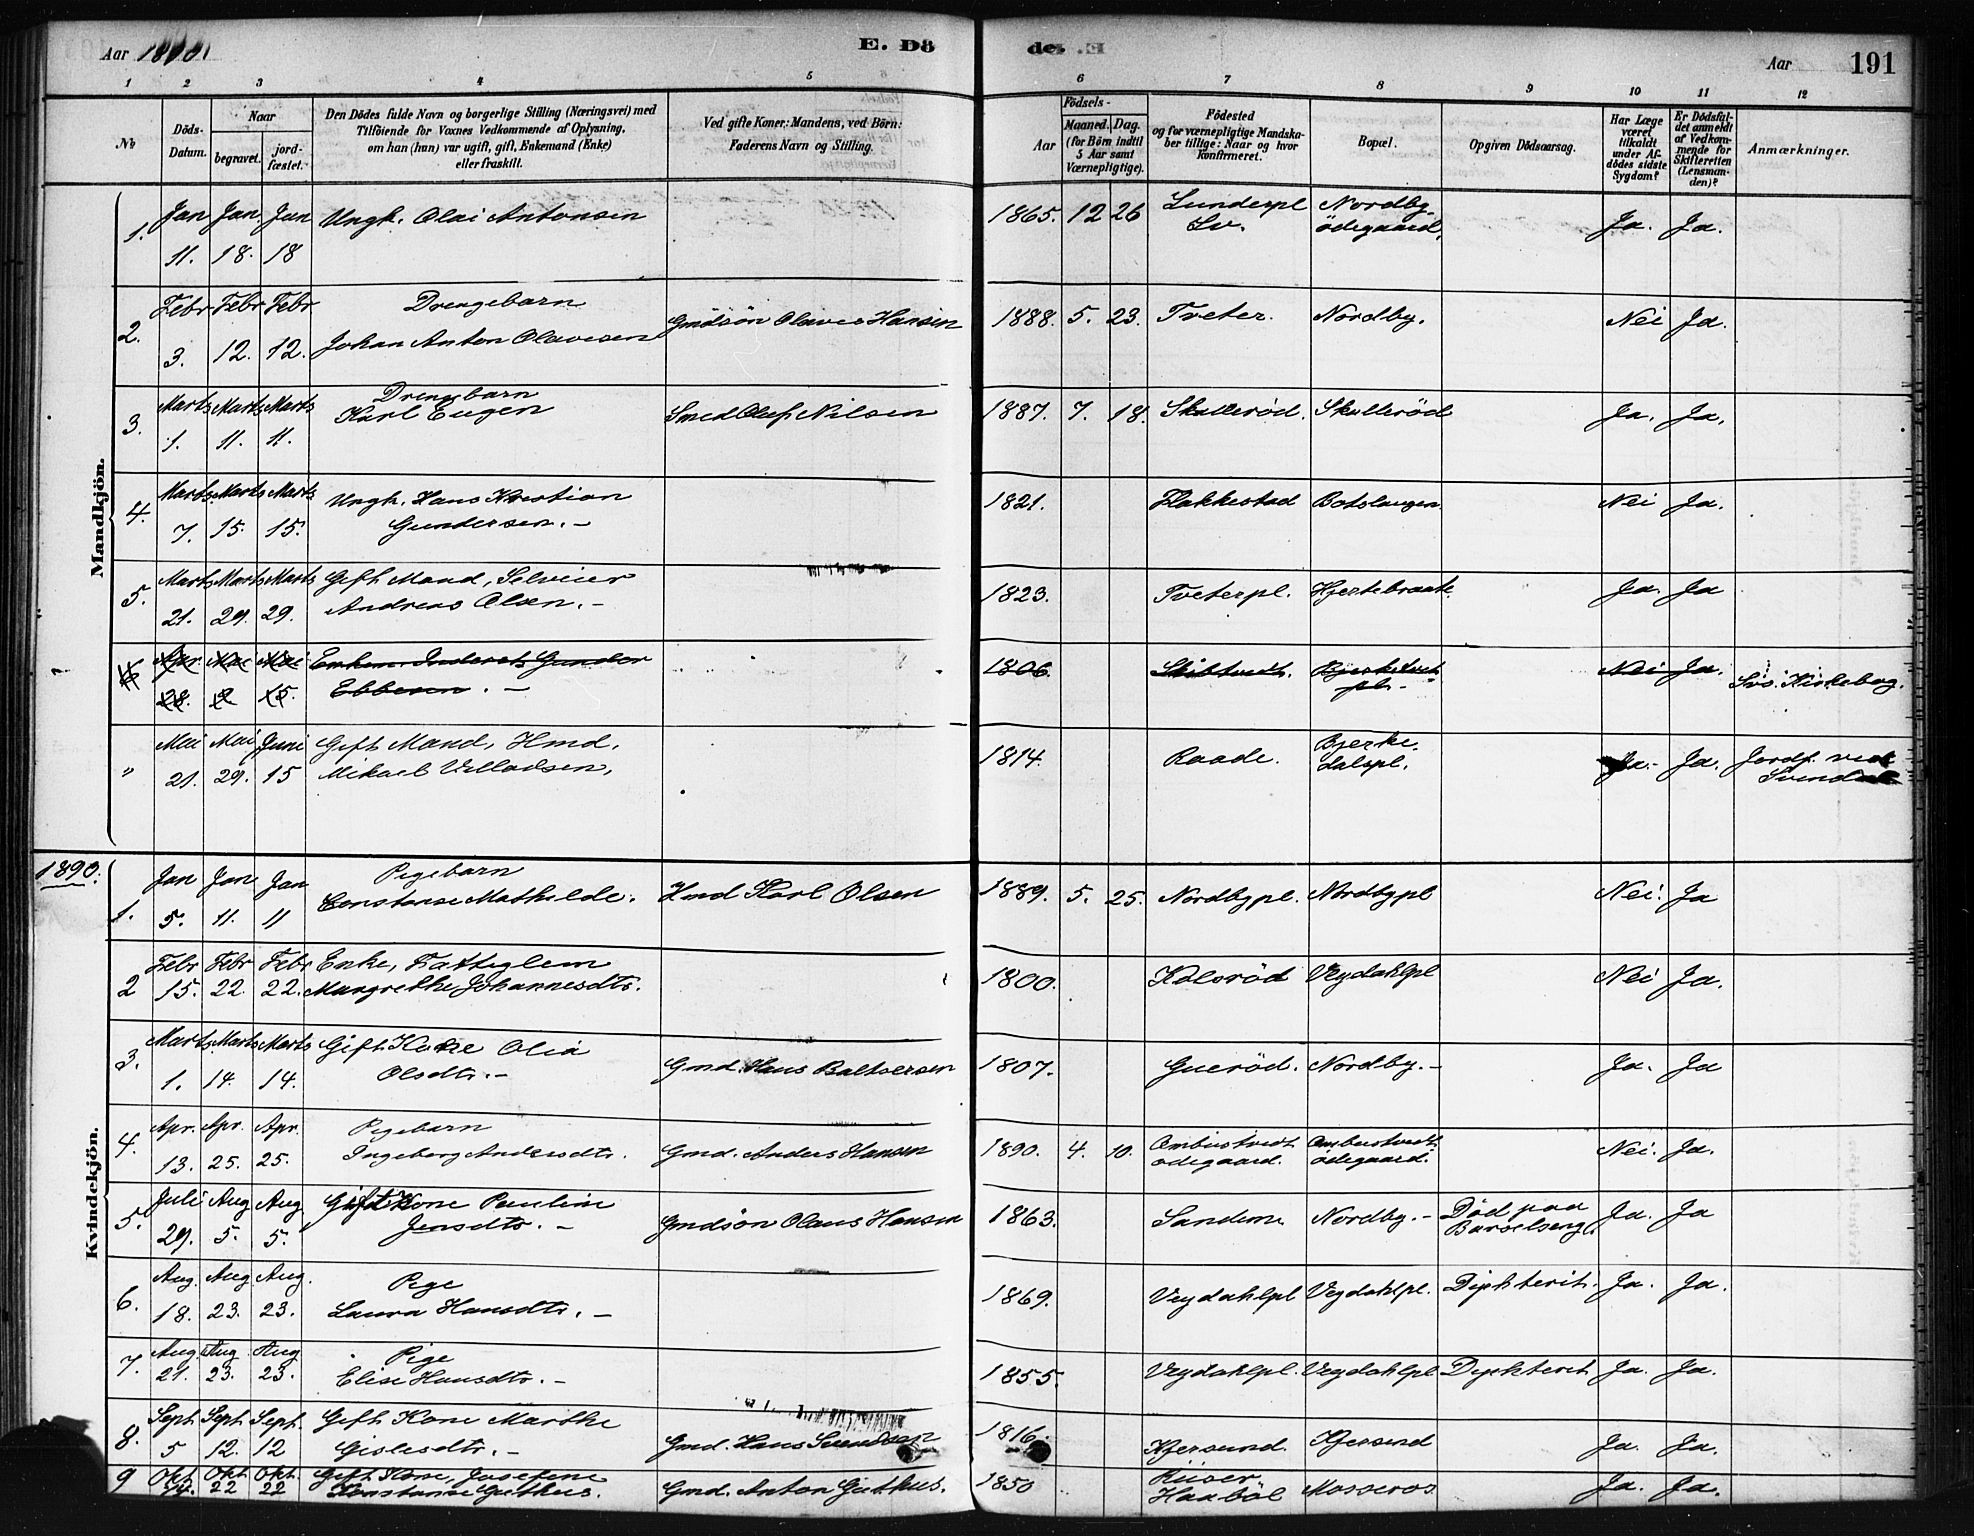 Aar 1890
E. Dö
de. E
Aar
191
1 2 3 4 5 6 7 8 9 10 11 12
No
Döds-
Datum.
Naar
begravet.
jord-
fæstet.
Den Dödes fulde Navn og borgerlige Stilling (Næringsvei) med
Tilföiende for Voxnes Vedkommende af Oplysning,
om han (hun) var ugift, gift, Enkemand (Enke)
eller fraskilt.
Ved gifte Koner: Mandens, ved Börn:
Faderens Navn og Stilling.
Födsels-
Aar
Maaned. Dag.
(for Börn indtil
5 Aar samt
Værnepligtige).
Födested
og for værnepligtige Mandska-
ber tillige: Naar og hvor
Konfirmeret.
Bopæl.
Opgiven Dödsaarsag.
Har Læge
været
tilkaldt
under Af-
dödes sidste
Sygdom?
Er Dödsfal-
det anmeldt
af Vedkom-
mende for
Skifteretten
(Lensman-
den)?
Anmærkninger.
Mandkjön.
1. Jan Jan Jan Ungk. Olai Antonsen 1865. 12 26 Lunderpl Nordby Ja. Ja.
11. 18. 18 Sv. ödegaard,
2. Febr Febr Febr Drengebarn Gmdsön Olaves Hansen 1888. 5. 23. Tveter. Nordby. Nei Ja.
3. 12. 12. Johan Anton Olavesen
3. Marts Marts Marts Drengebarn
Karl Eugen Smed Oluf Nilsen 1887. 7. 18. Skullerød. Skulleröd Ja. Ja.
1. 11. 11.
4. Marts Marts Marts Ungk. Hans Kristian 1821. Flakkestad Botslangen Nei Ja.
7. 15. 15. Gundersen. —
5. Marts Marts Marts Gift Mand, Selveier 1823. Tveterpl. Hjertebraate Ja. Ja
21. 29. 29. Andreas Olsen. —
6 Apr. Mai Mai Enkem. Inderst Gunder 1806. Skibtvedt. Nei Ja. Svs. Kirkebog.
28. 2 15. Ebbesen. — pl. —
" Mai Mai Juni Gift Mand, Hmd. 1814. Raade. Bjerke- Ja. Ja. Jordf. ved
21. 29. 15 Mikael Velladsen, dalspl. Svindal
1890.
Kvindekjön.
1. Jan Jan Jan Pigebarn
5. 11. 11 Constanse Mathilde. Hmd Karl Olsen 1889. 5. 25. Nordbypl. Nordbypl Nei. Ja
2 Febr Febr Febr Enke, Fattiglem 1800. Kolsröd Veydahlpl Nei Ja.
15. 22. 22. Margrethe Johannesdtr.
3. Marts Marts Marts Gift Kone Olia Gmd. Hans Baltsersen 1807. Gueröd. Nordby. — Ja. Ja
1. 14. 14. Olsdtr. —
4. Apr. Apr. Apr. Pigebarn 1890. 4. 10. Ombustvedt Ombustvedt Nei. Ja.
13. 25. 25. Ingeborg Andersdtr. Gmd. Anders Hansen ödegaard. ödegaard.
5. Juli Aug Aug Gift Kone Pauline Gmdsön Olaus Hansen 1863. Sandem Nordby. — Död paa Ja. Ja
29. 5. 5. Jensdtr. — Barselseng.
6. Aug. Aug Aug. Pige 1869. Veydahlpl Veydahlpl. Diphterit. Ja. Ja.
18. 23. 23. Laura Hansdtr. —
7. Aug. Aug Aug Pige 1855. Veydahlpl. Veydahlpl Diphterit Ja. Ja.
21. 23. 23. Elise Hansdtr. —
8. Sept Sept Sept. Gift Kone Marthe 1816. Kjersund. Kjersund Ja. Ja.
5 12. 12 Gislesdtr. — Gmd. Hans Svendsen
9 Okt Okt Okt. Gift Kone, Josefine 1850 Haaböl Mosseros Ja. Ja.
14. 22 22 Constanse Guthus. Gmd. Anton Guthus.